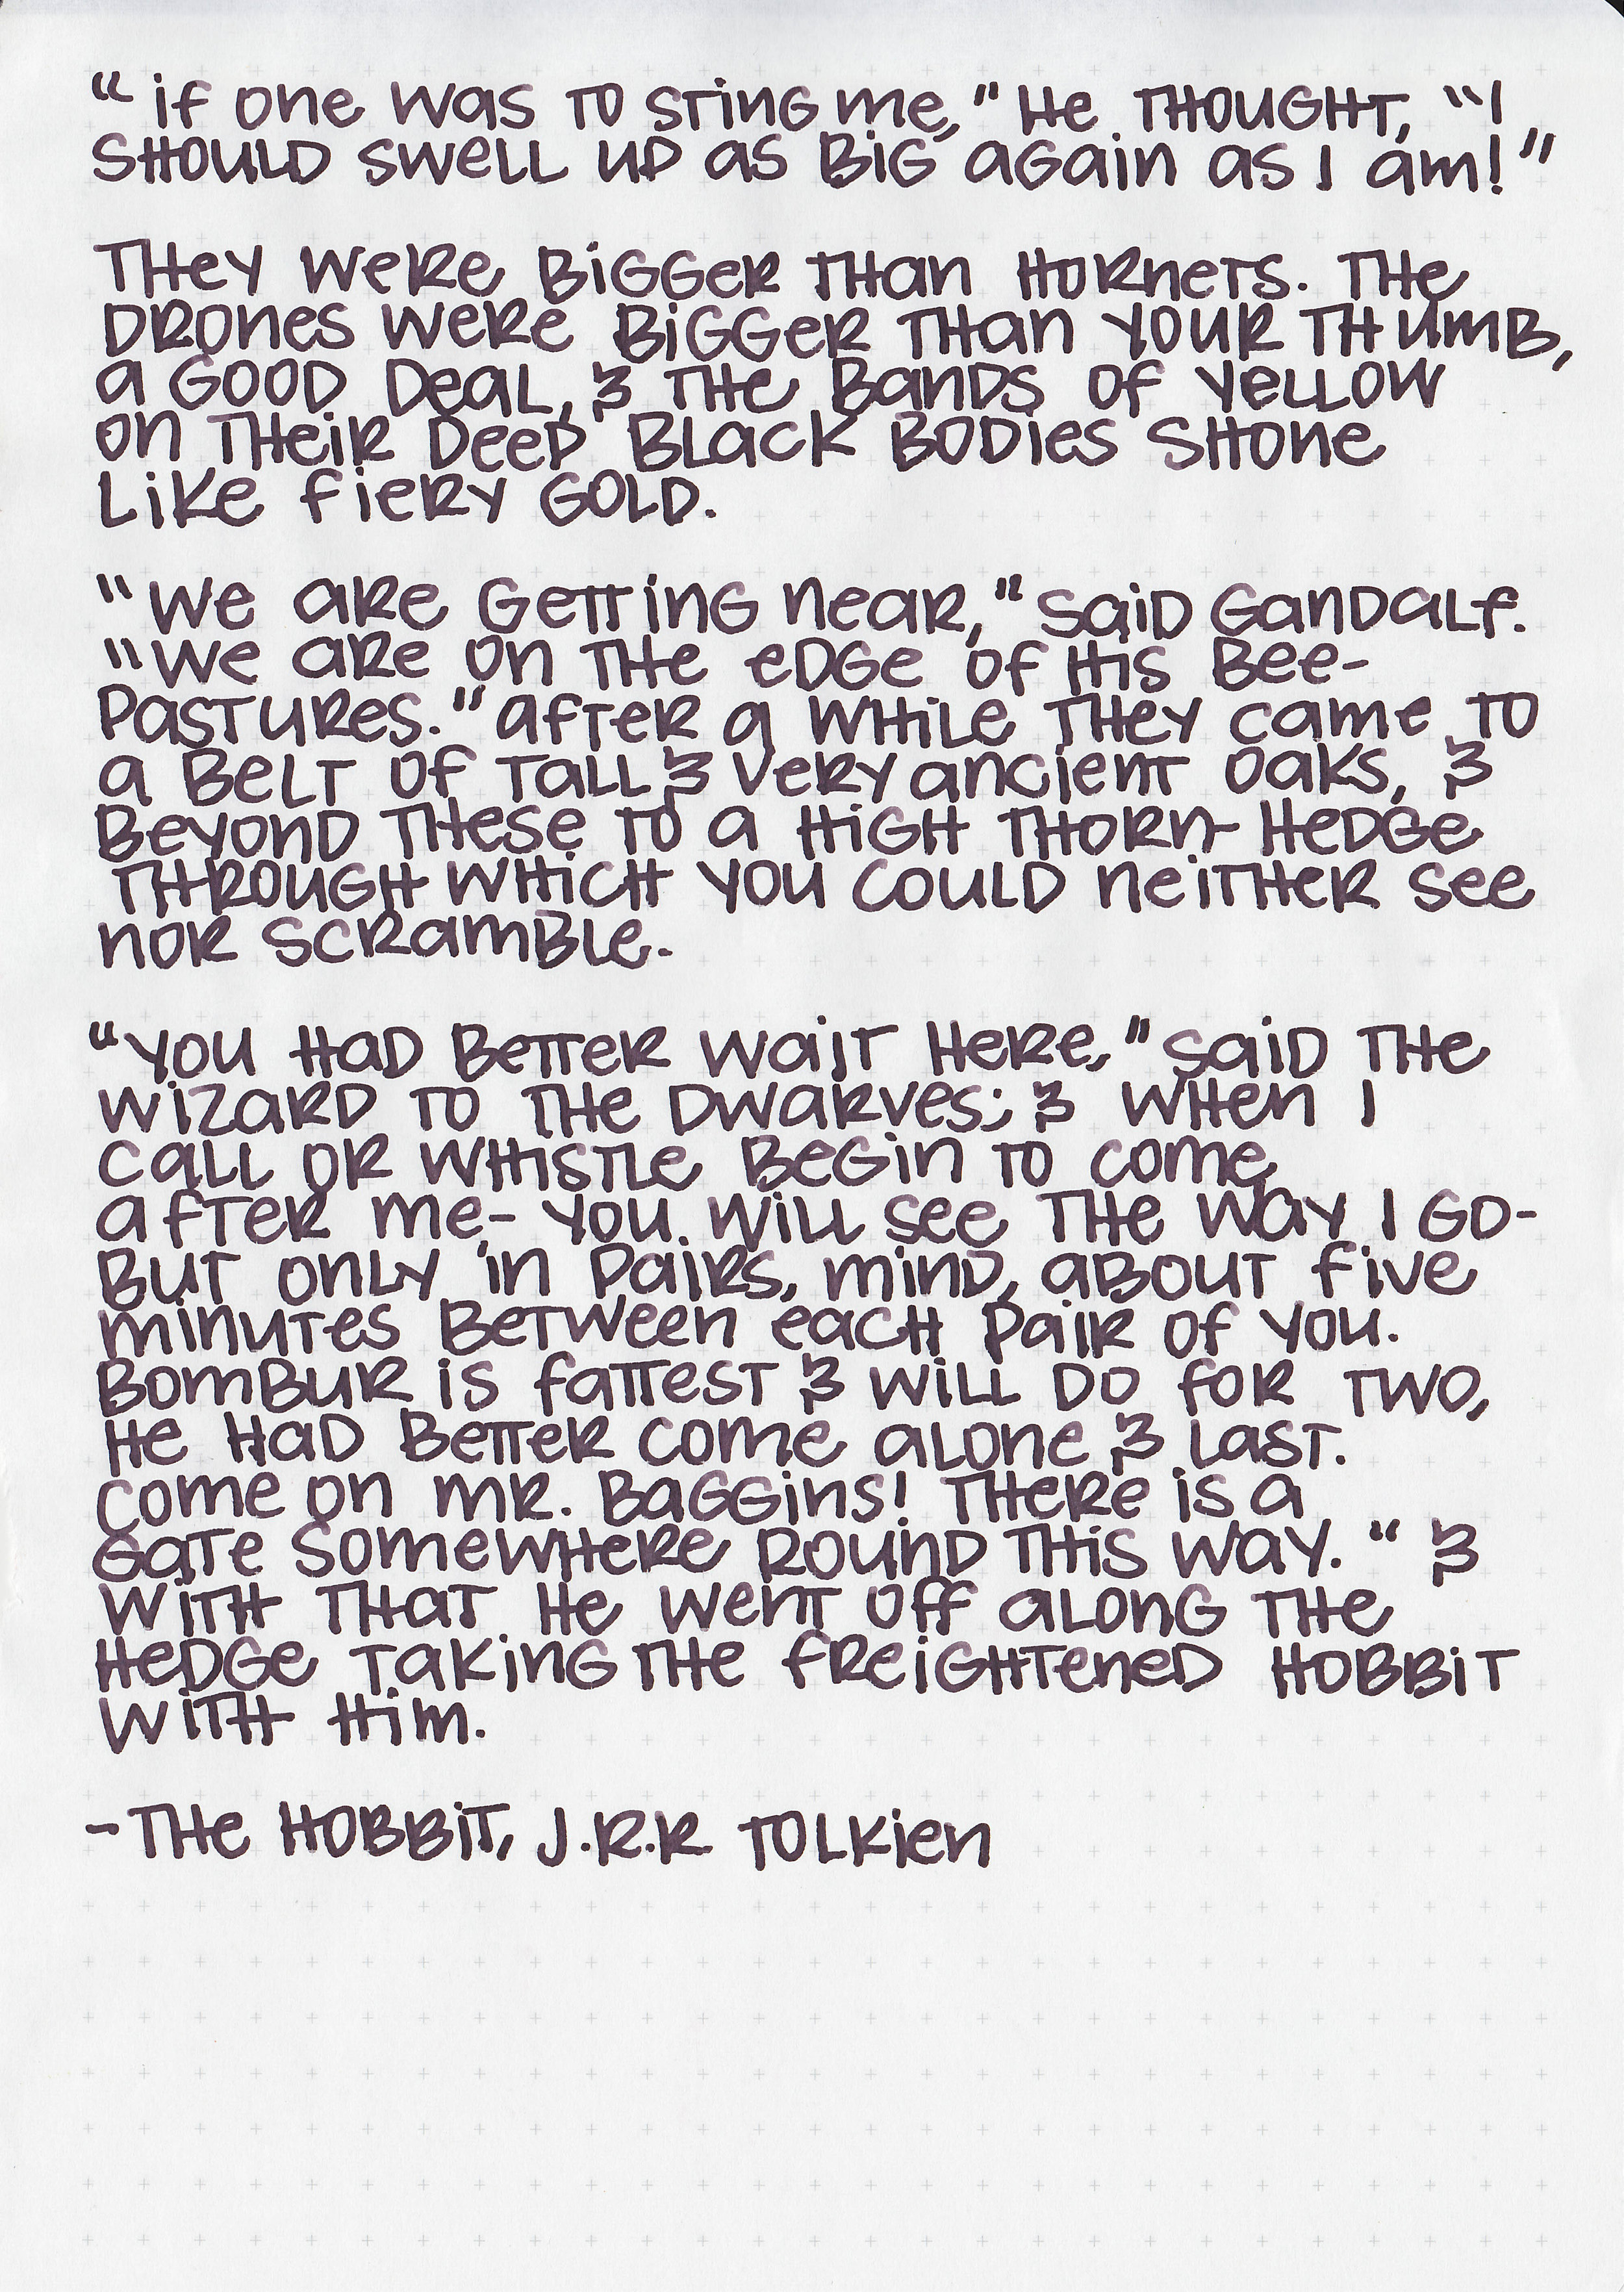 "If one was to sting me," he thought, "I
should swell up as big again as I am!"
They were bigger than hornets. The
drones were bigger than your thumb,
a good deal, & the bands of yellow
on their deep black bodies shone
like fiery gold.
"We are getting near," said Gandalf.
"We are on the edge of his bee-
pastures." After a while they came to
a belt of tall & very ancient oaks, &
beyond these to a high thorn-hedge
through which you could neither see
nor scramble.
"You had better wait here," said the
wizard to the dwarves; & when I
call or whistle begin to come
after me- you will see the way I go-
but only in pairs, mind, about five
minutes between each pair of you.
Bombur is fattest & will do for two,
he had better come alone & last.
Come on Mr. Baggins! There is a
gate somewhere round this way." &
with that he went off along the
hedge taking the freightened hobbit
with him.
-The Hobbit, J.R.R. Tolkien